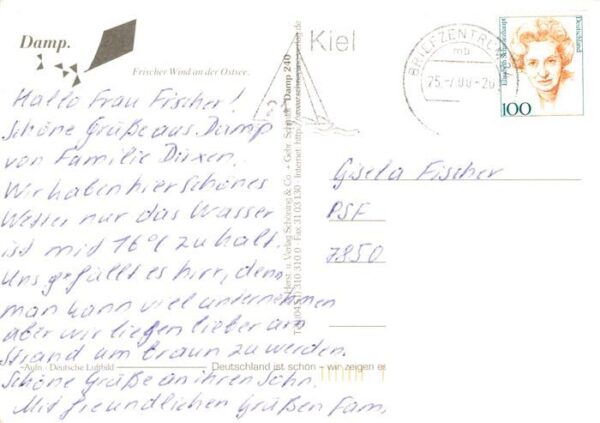 Damp.
Frischer Wind an der Ostsee.
Hallo Frau Fischer!
Schöne Grüße aus Damp
von Familie Dirxen.
Wir haben hier schönes
Wetter nur das Wasser
ist mit 16°C zu kalt.
Uns gefällt es hier, denn
man kann viel unternehmen
aber wir liegen lieber am
Strand um braun zu werden.
Schöne Grüße an ihren Sohn.
Mit freundlichen Grüßen Fam.
Aufn.: Deutsche Luftbild
Deutschland ist schön - wir zeigen es
Verlag Schöning & Co + Gebr. Schmidt
Damp 240
Kiel
BRIEFZENTRUM
mb
Deutschland
100
Gisela Fischer
PSF
7850